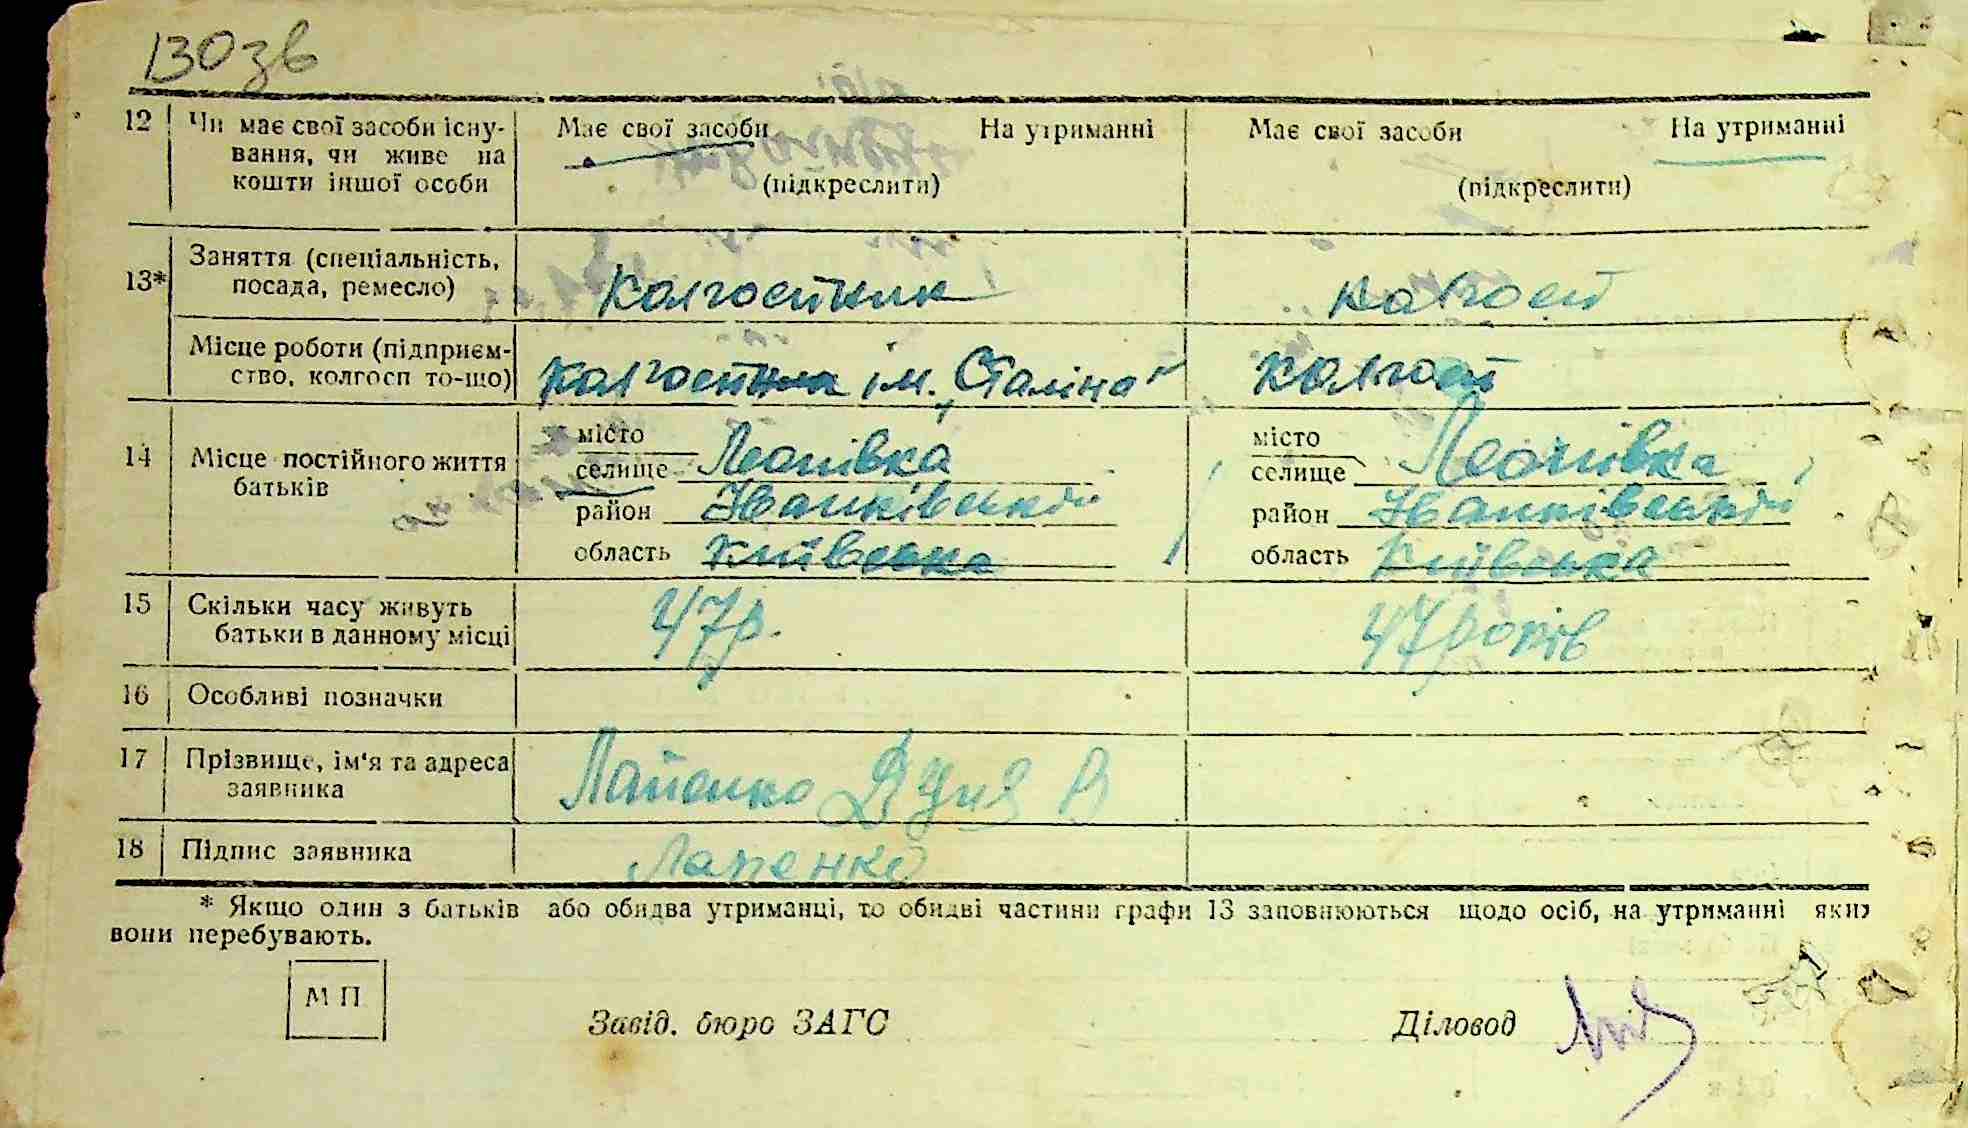 130зв
12 Чи має свої засоби існу- Має свої засоби На утриманні Має свої засоби На утриманні
вання, чи живе на
кошти іншої особи (підкреслити) (підкреслити)
13* Заняття (спеціальність,
посада, ремесло) Колгоспник колгосп
Місце роботи (підприєм-
ство, колгосп то-що) колгоспник ім. „Сталіна" колгосп
14 Місце постійного життя
батьків
місто місто
селище Леонівка селище Леонівка
район Іванківський район Іванківський
область Київська область Київська
15 Скільки часу живуть
батьки в данному місці 47р. 47 років
16 Особливі позначки
17 Прізвище, ім'я та адреса
заявника Лапенко Дуня В
18 Підпис заявника Лапенко
* Якщо один з батьків або обидва утриманці, то обидві частини графи 13 заповнюються щодо осіб, на утриманні яких
вони перебувають.
М П
Завід. бюро ЗАГС Діловод